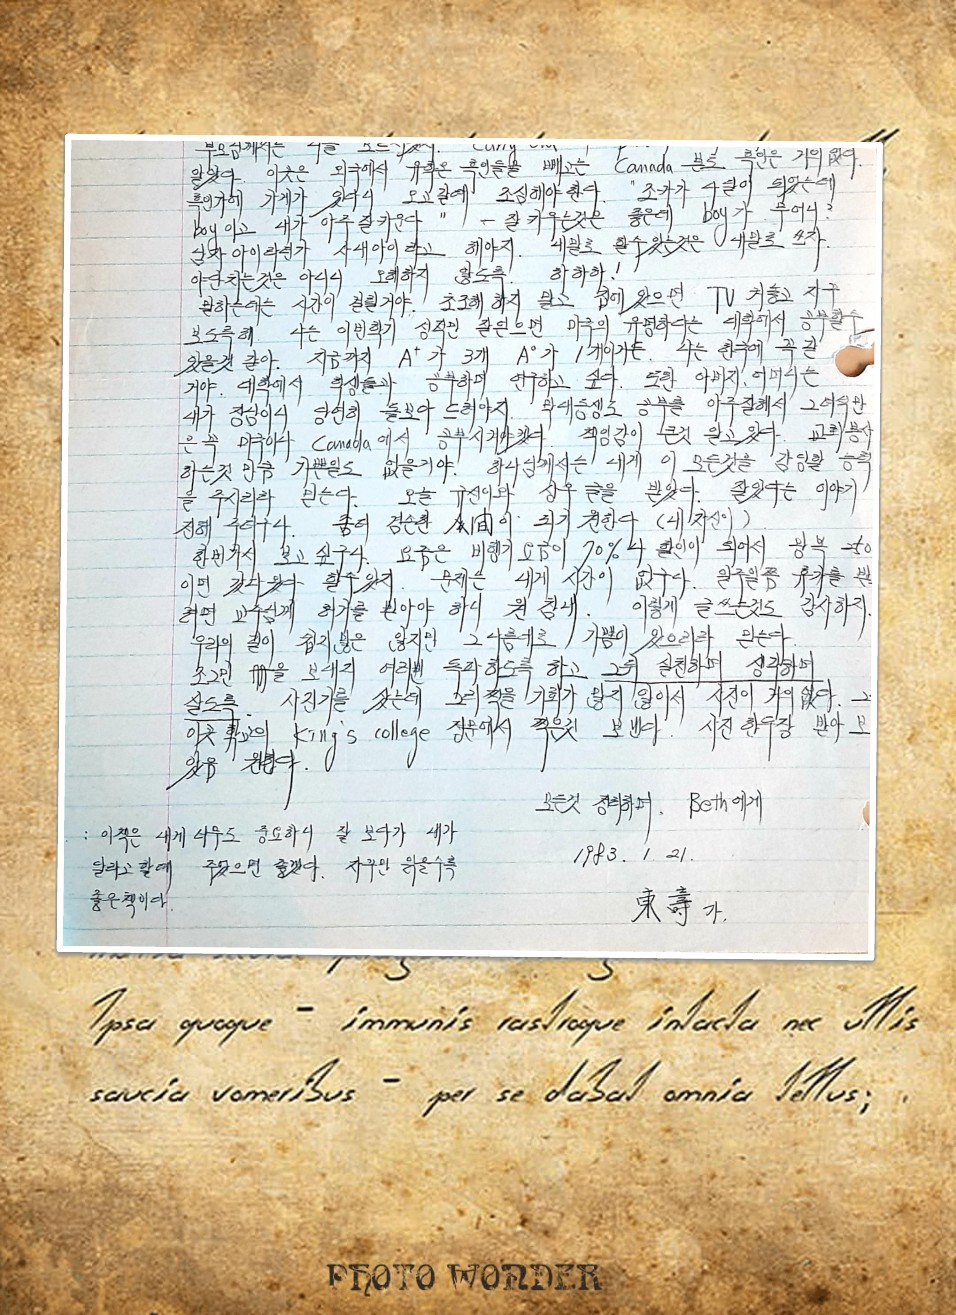 알았다. 이곳은 외국에서 유학온 흑인들을 빼고는 Canada 본토 흑인은 거의 없다.
흑인가에 가게가 있다니 오고갈때 조심해야한다. "조카가 4살이 되었는데
boy이고 내가 아주 잘키운다" - 잘 키우는것은 좋은데 boy가 무어니?
남자 아이라던가 사내아이라고 해야지. 내말로 할수있는것은 내말로 쓰자.
야단치는것은 아니니 오해하지 않도록. 하하하!
말하는데는 시간이 걸릴거야. 초조해 하지 말고 집에 있으면 TV 켜놓고 자꾸
보도록해 나는 이번학기 성적만 잘받으면 미국의 유명하다는 대학에서 공부할수
있을것 같아. 지금까지 A⁺가 3개 A°가 1개이거든. 나는 한국에 꼭 갈
거야. 대학에서 학생들과 공부하며 연구하고 싶다. 또한 아버지, 어머니는
내가 장남이니 당연히 돌보아 드려야지. 막내동생도 공부를 아주잘해서 그녀석만
은 꼭 미국이나 Canada에서 공부시켜야겠다. 책임감이 큰것 알고있다. 교회봉사
하는것 만큼 기쁜일도 없을거야. 하나님께서는 내게 이 모든것을 감당할 능력
을 주시리라 믿는다. 오늘 규진이와 상우 글을 받았다. 잘있다는 이야기
전해 주더구나. 좀더 겸손한 人間이 되기 원한다 (내 자신이)
한번가서 보고 싶구나. 요즘은 비행기 요금이 70%나 할인이 되어서 왕복
이면 갔다 왔다 할수있지. 문제는 내게 시간이 없구나. 일주일쯤 휴가를 받
려면 교수님께 허가를 받아야 하니 원 참내. 이렇게 글쓰는것도 감사하지.
우리의 길이 쉽지많은 않지만 그 나름대로 기쁨이 있으리라 믿는다.
조그만 책을 보내니 여러번 독파하도록 하고 그뒤 실천하며 생각하며
살도록. 사진기를 샀는데 그리 찍을 기회가 많지 않아서 사진이 거의없다.
이곳 학교의 King's college 정문에서 찍은것 보낸다. 사진 한두장 받아 보
았음 원한다.
모든것 감사하며, Beth에게
: 이책은 내게 너무도 중요하니 잘 보다가 내가
달라고 할때 주었으면 좋겠다. 자꾸만 읽을수록
좋은책이다.
1983. 1. 21.
東壽 가.
Ipsa quoque - immunis rastroque intacta nec ullis
saucia vomeribus - per se dabat omnia tellus;
PHOTO WONDER